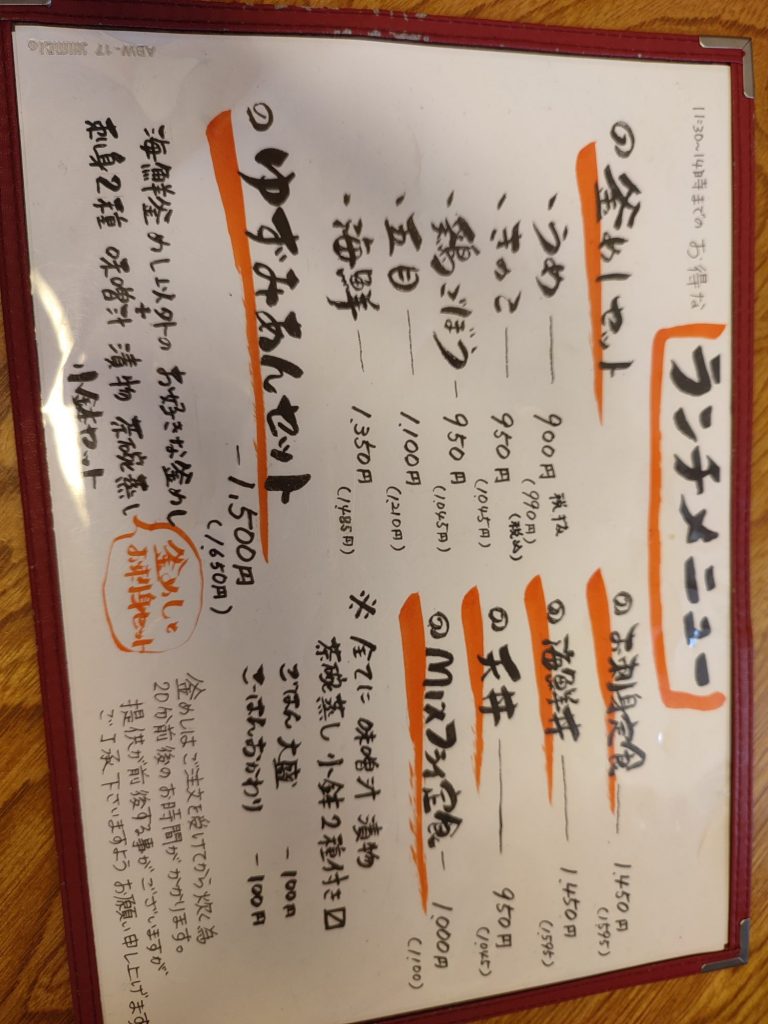 11:30~14時までの お得な
ランチメニュー
釜めしセット
・うめ ― 900円 税抜
(990円) (税込)
・きのこ ― 950円
(1,045円)
・鶏ごぼう ― 950円
(1,045円)
・五目 ― 1,100円
(1,210円)
・海鮮 ― 1,350円
(1,485円)
ゆずみあんセット
― 1,500円
(1,650円)
海鮮釜めし以外の お好きな釜めし
+
刺身2種 味噌汁 漬物 茶碗蒸し
小鉢セット
釜めしと
お刺身セット
お刺身定食 ― 1,450円
(1,595)
海鮮丼 ― 1,450円
(1,595)
天丼 ― 950円
(1,045)
Mixフライ定食 ― 1,000円
(1,100)
※ 全てに 味噌汁 漬物
茶碗蒸し 小鉢2種付き〼
ごはん大盛 - 100円
ごはんおかわり - 100円
釜めしはご注文を受けてから炊く為
20分前後のお時間がかかります。
提供が前後する事がございますが
ご了承下さいますようお願い申し上げます
ABW-17